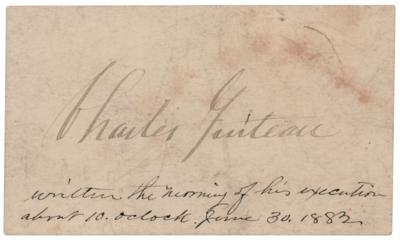 Charles Guiteau
written the morning of his execution
about 10. oclock. June 30. 1882